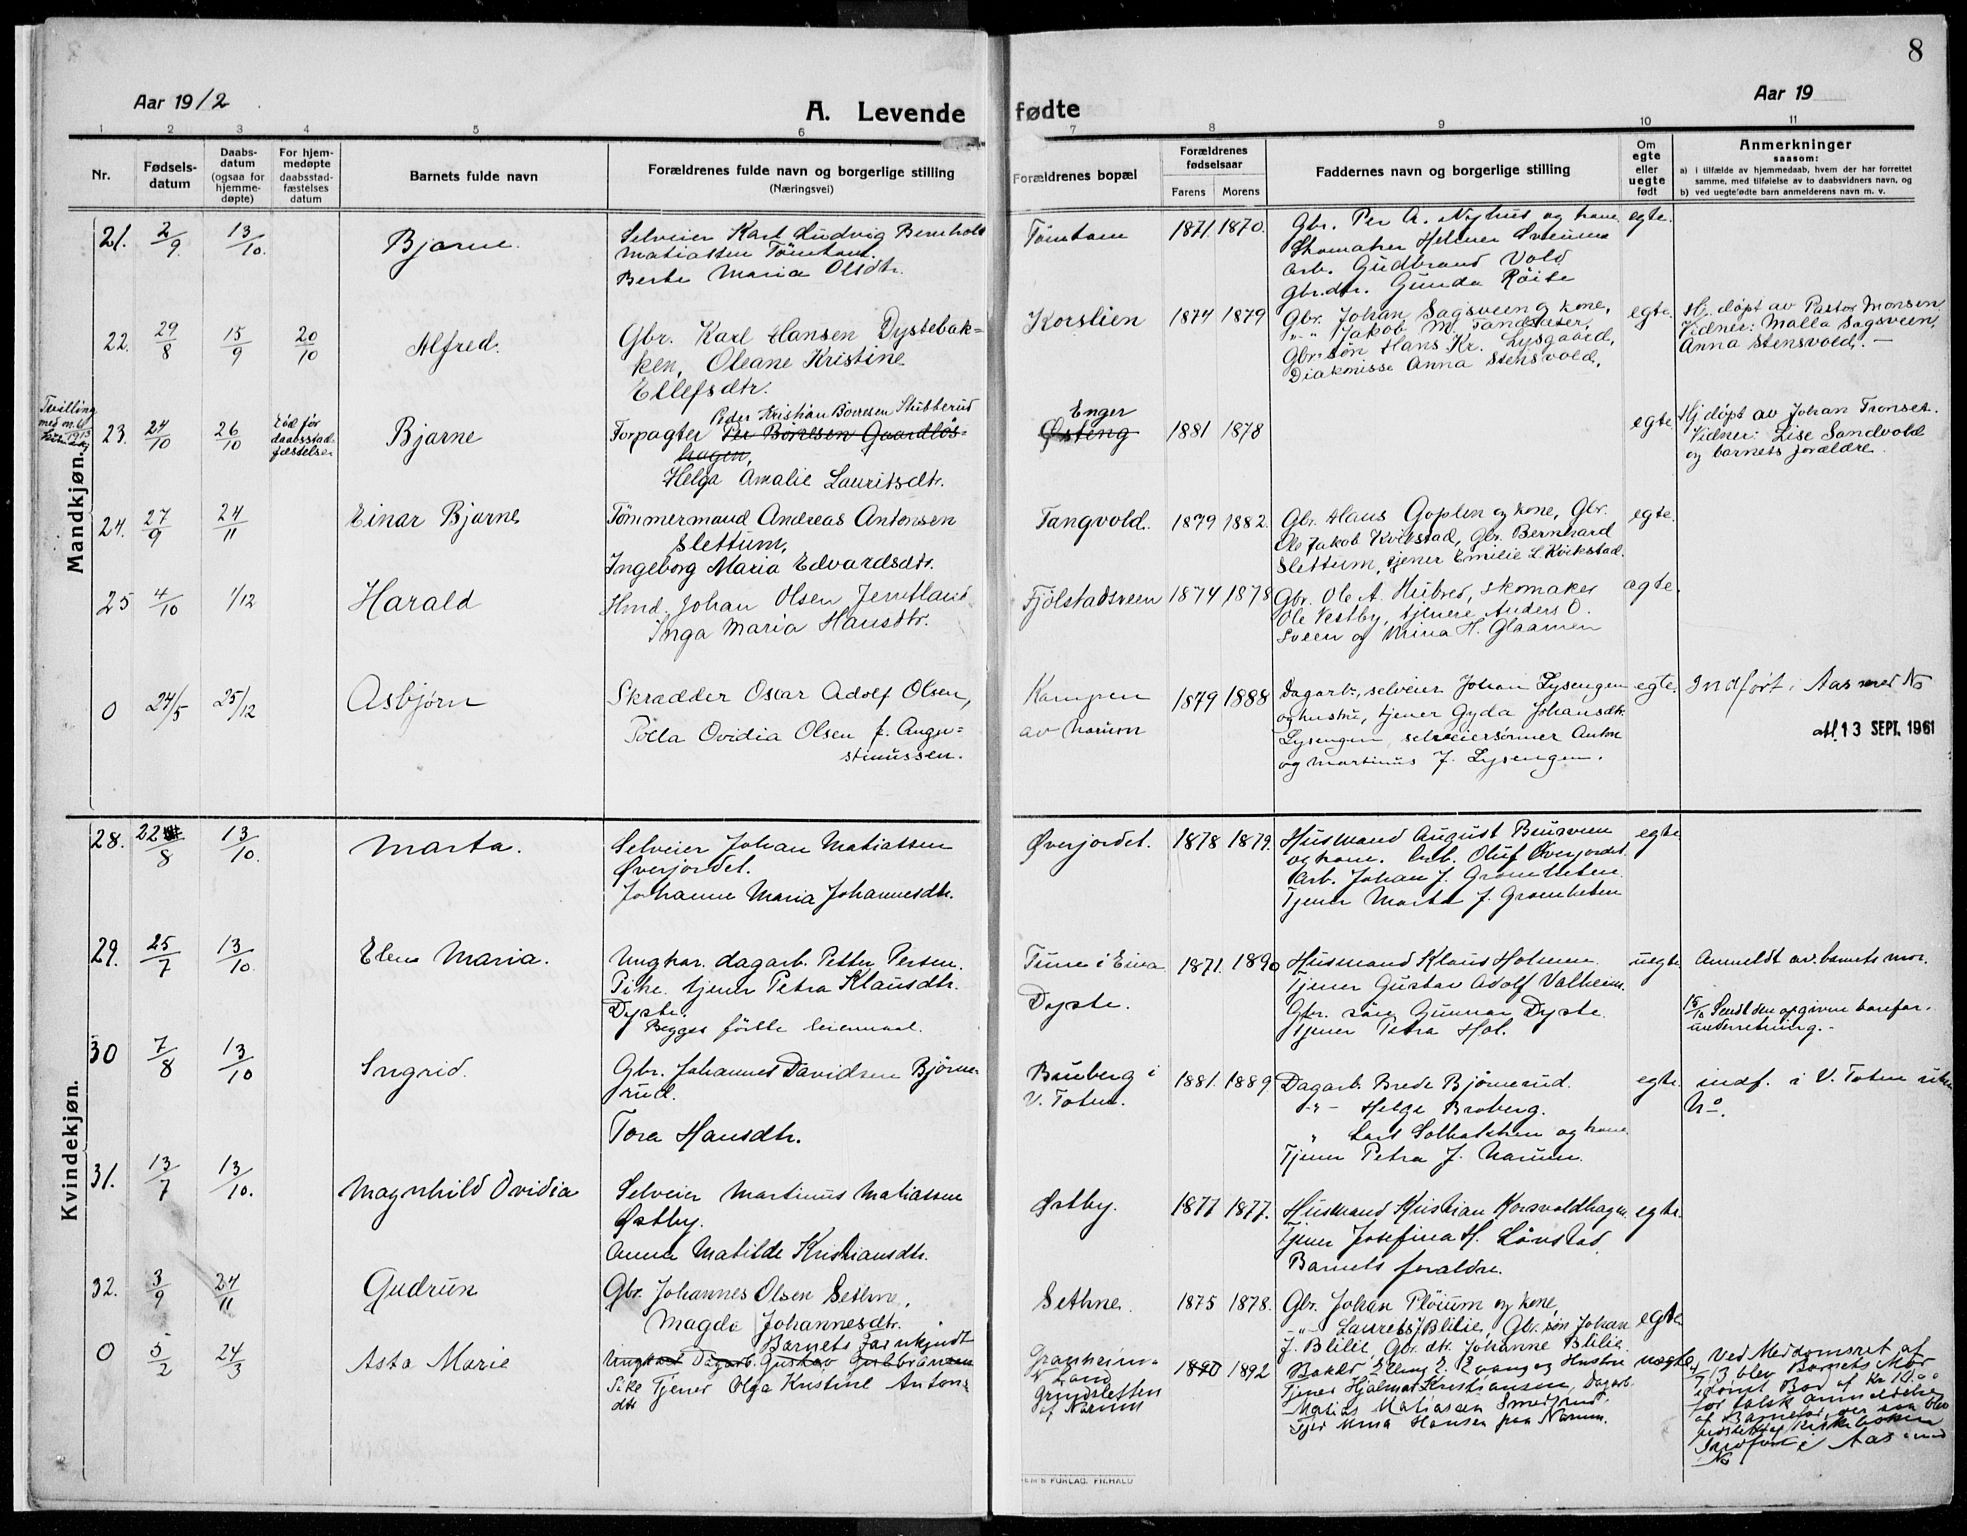 8
Aar 1912
A. Levende
fødte
Aar 19
1 2 3 4 5 6 7 8 9 10 11
Nr.
Fødsels-
datum
Daabs-
datum
(ogsaa for
hjemme-
døpte)
For hjem-
medøpte
daabsstad-
fæstelses
datum
Barnets fulde navn
Forældrenes fulde navn og borgerlige stilling
(Næringsvei)
Forældrenes bopæl
Forældrenes
fødselsaar
Farens
Morens
Faddernes navn og borgerlige stilling
Om
egte
eller
uegte
født
Anmerkninger
saasom:
a) i tilfælde av hjemmedaab, hvem der har forrettet
samme, med tilføielse av to daabsvidners navn, og
b) ved uegte fødte barn anmelderens navn m. v.
Mandkjøn.
21. 2/9 13/10. Bjarne.
Selveier Karl Ludvig Bernhold
Matiassen Tömtom.
Berte Maria Olsdtr.
Tömtom 1871. 1870.
Gbr. Per A. Nyhus og kone
Skomaker Helmer Sveum
Arb. Gudbrand Vold
Gbr.dtr. Gunda Röise
egte.
22. 29/8 15/9 20/10 Alfred.
Gbr. Karl Hansen Dystebak-
ken, Oleane Kristine
Ellefsdtr.
Korslien 1874 1879
Gbr. Johan Sagsveen og kone,
" " Jakob M. Tandsæter,
Gbr. søn Hans Kr. Lysgaard,
Diakonisse Anna Stensvold.
egte.
Hj. døpt av Pastor Monsen
Vidner: Malla Sagsveen,
Anna Stensvold. —
Tvilling
med m. 6
1913
23. 24/10 26/10
død før
daabsstad-
fæstelse
Bjarne
Peder Kristian Börresen Stubberud
Forpagter Per Börresen Gaardlös-
hagen,
Helga Amalie Lauritsdtr.
Enger
Østeng 1881 1878
egte
Hj døpt av Johan Tronset.
Vidner: Lise Sandvold
og barnets forældre.
24. 27/9 24/11 Einar Bjarne
Tömmermand Andreas Antonsen
Slettum,
Ingeborg Maria Edvardsdtr.
Tangvold. 1879 1882.
Gbr. Hans Goplen og kone, Gbr.
Ole Jakob Kvikstad, Gbr. Bernhard
Slettum, tjener Emilie L. Kvikstad.
egte.
25 4/10 1/12 Harald
Hmd. Johan Olsen Jemtland
Inga Maria Hansdtr.
Fjölstadsveen 1874 1878
Gbr. Ole A. Hubred, skomaker
Ole Vestby, tjenere Anders O.
Sveen og Mina H. Glaamen
egte.
0 24/5 25/12 Asbjørn
Skrædder Oscar Adolf Olsen,
Tolla Ovidia Olsen f. Augu-
stinussen.
Kampen
av Narum 1879 1888
Dagarb., selveier Johan Lysengen
og hustru, tjener Gyda Johansdtr.
Lysengen, selveiersönner Anton
og Martinus J. Lysengen.
egte.
Indført i Aas med No
att. 13 SEPT. 1961
Kvindekjøn.
28. 22/8 13/10. Marta.
Selveier Johan Matiassen
Øverjordet.
Johanne Maria Johannesdtr.
Øverjordet. 1878 1879.
Husmand August Brusveen
og kone. Arb. Oluf Øverjordet.
Arb. Johan J. Gromsleten
Tjener Marta J. Gromsleten
egte
29. 25/7 13/10. Elen Maria.
Ungkar. dagarb. Petter Persen.
Pike. tjener Petra Klausdtr.
Dyste.
Begges förste leiermaal.
Tune i Eina
Dyste. 1871. 1890
Husmand Klaus Holmen.
Tjener Gustav Adolf Valheim.
Gbr. sön Gunnar Dyste.
Tjener Petra Hol.
uegte
Anmeldt av barnets mor.
15/10 Sendt den opgivne barnefar.
underretning. -
30 7/8 13/10 Ingrid.
Gbr. Johannes Davidsen Bjørne-
rud.
Tora Hansdtr.
Bruberg i
V. Toten. 1881. 1889
Dagarb. Brede Bjørnerud.
-"- Helge Broberg.
" Lars Solbakken og kone.
Tjener Petra J. Narum.
egte.
indf. i V. Toten uten
No.
31. 13/7 13/10. Magnhild Ovidia
Selveier Martinus Matiassen
Østby.
Anna Matilde Kristiansdtr.
Østby. 1877 1877.
Husmand Kristian Korsvoldhagen
Tjener Josefina H. Lönstad
Barnets forældre.
egte.
32. 3/9 24/11 Gudrun
Gbr. Johannes Olsen Sethne,
Magda Johannesdtr.
Sethne. 1875 1878.
Gbr. Johan Plöium og kone,
-"- Laurets J Blilie, Gbr. søn Johan
J. Blilie, Gbr. dtr. Johanne Blilie.
egte
0 5/2 24/3 Asta Marie
Barnets Far ukjendt
Ungkar Dagarb. Gustav Gulbransen
Pike Tjener Olga Kristine Anton-
dtr
Granheim
N Land
Grindsletten
af Narum
1890 1892
Baker Elling E. Evang og Hustru
Tjener Hjalmar Kristiansen, Dagarb.
Matias Matiassen Smedsrud.
Tjen Mina Hansen paa Narum.
uegte
Ved Meddomsret af
4/7 13 blev Barnets Mor
idømt Bod af Kr 10.00
for falsk anmeldelse
af Barnefar, der saa blev
udslettet af Kirkeboken
Indført i Aas med
No
FORLAG. FR.HALD